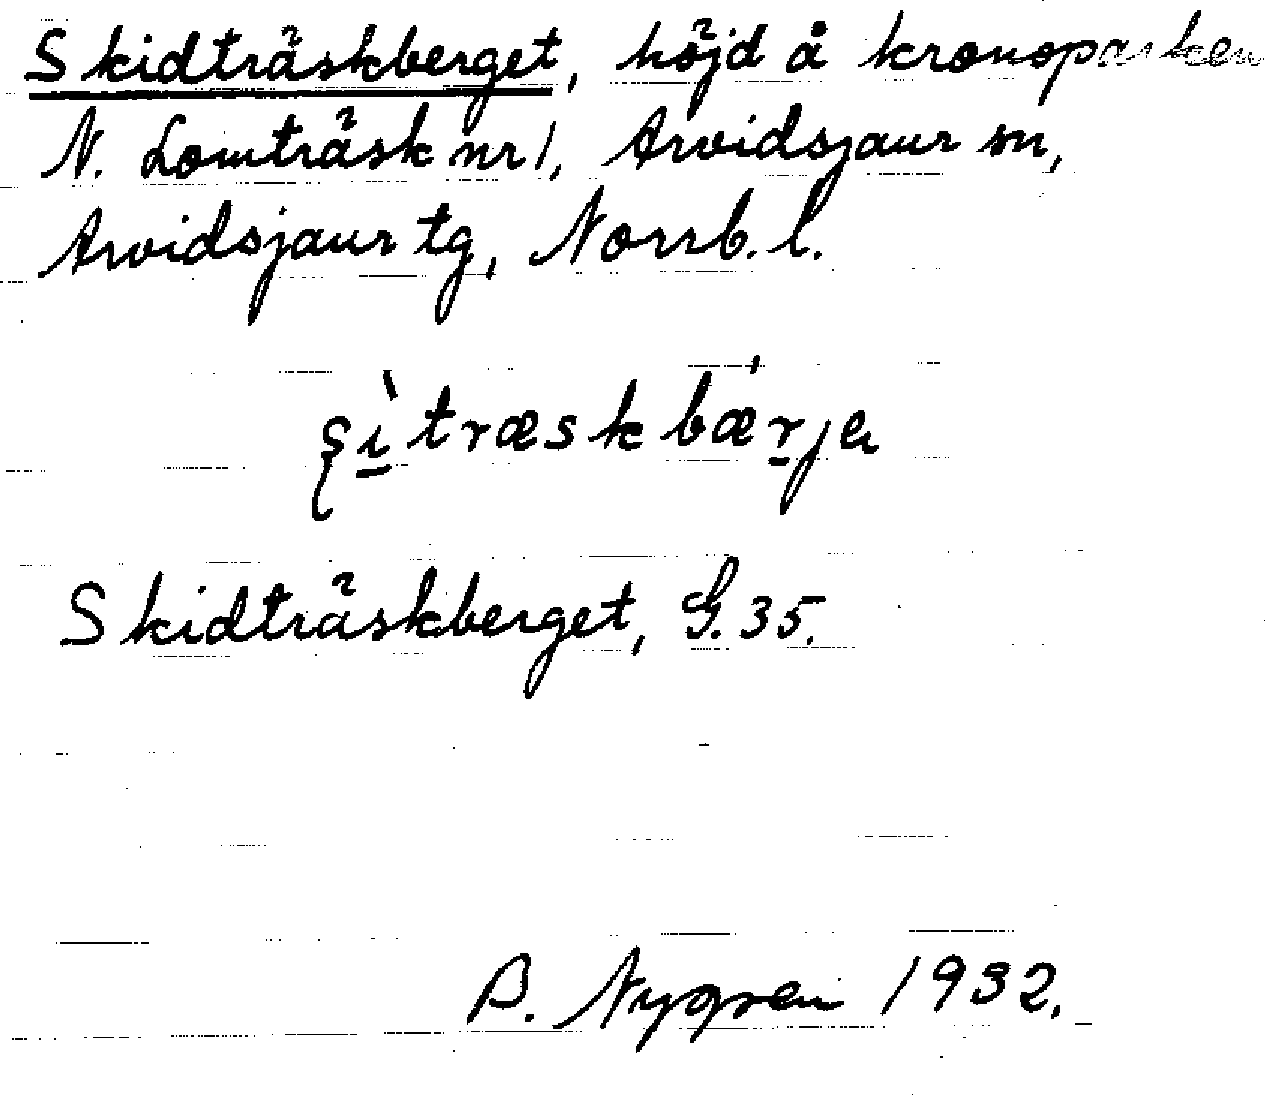 Skidträskberget, höjd å kronoparken
N. Lomträsk nr 1, Arvidsjaur sn,
Arvidsjaur tg, Norrb. l.
ʂì̱træskbǽr̠jɐ
Skidträskberget, G. 35.
B. Nygren 1932.